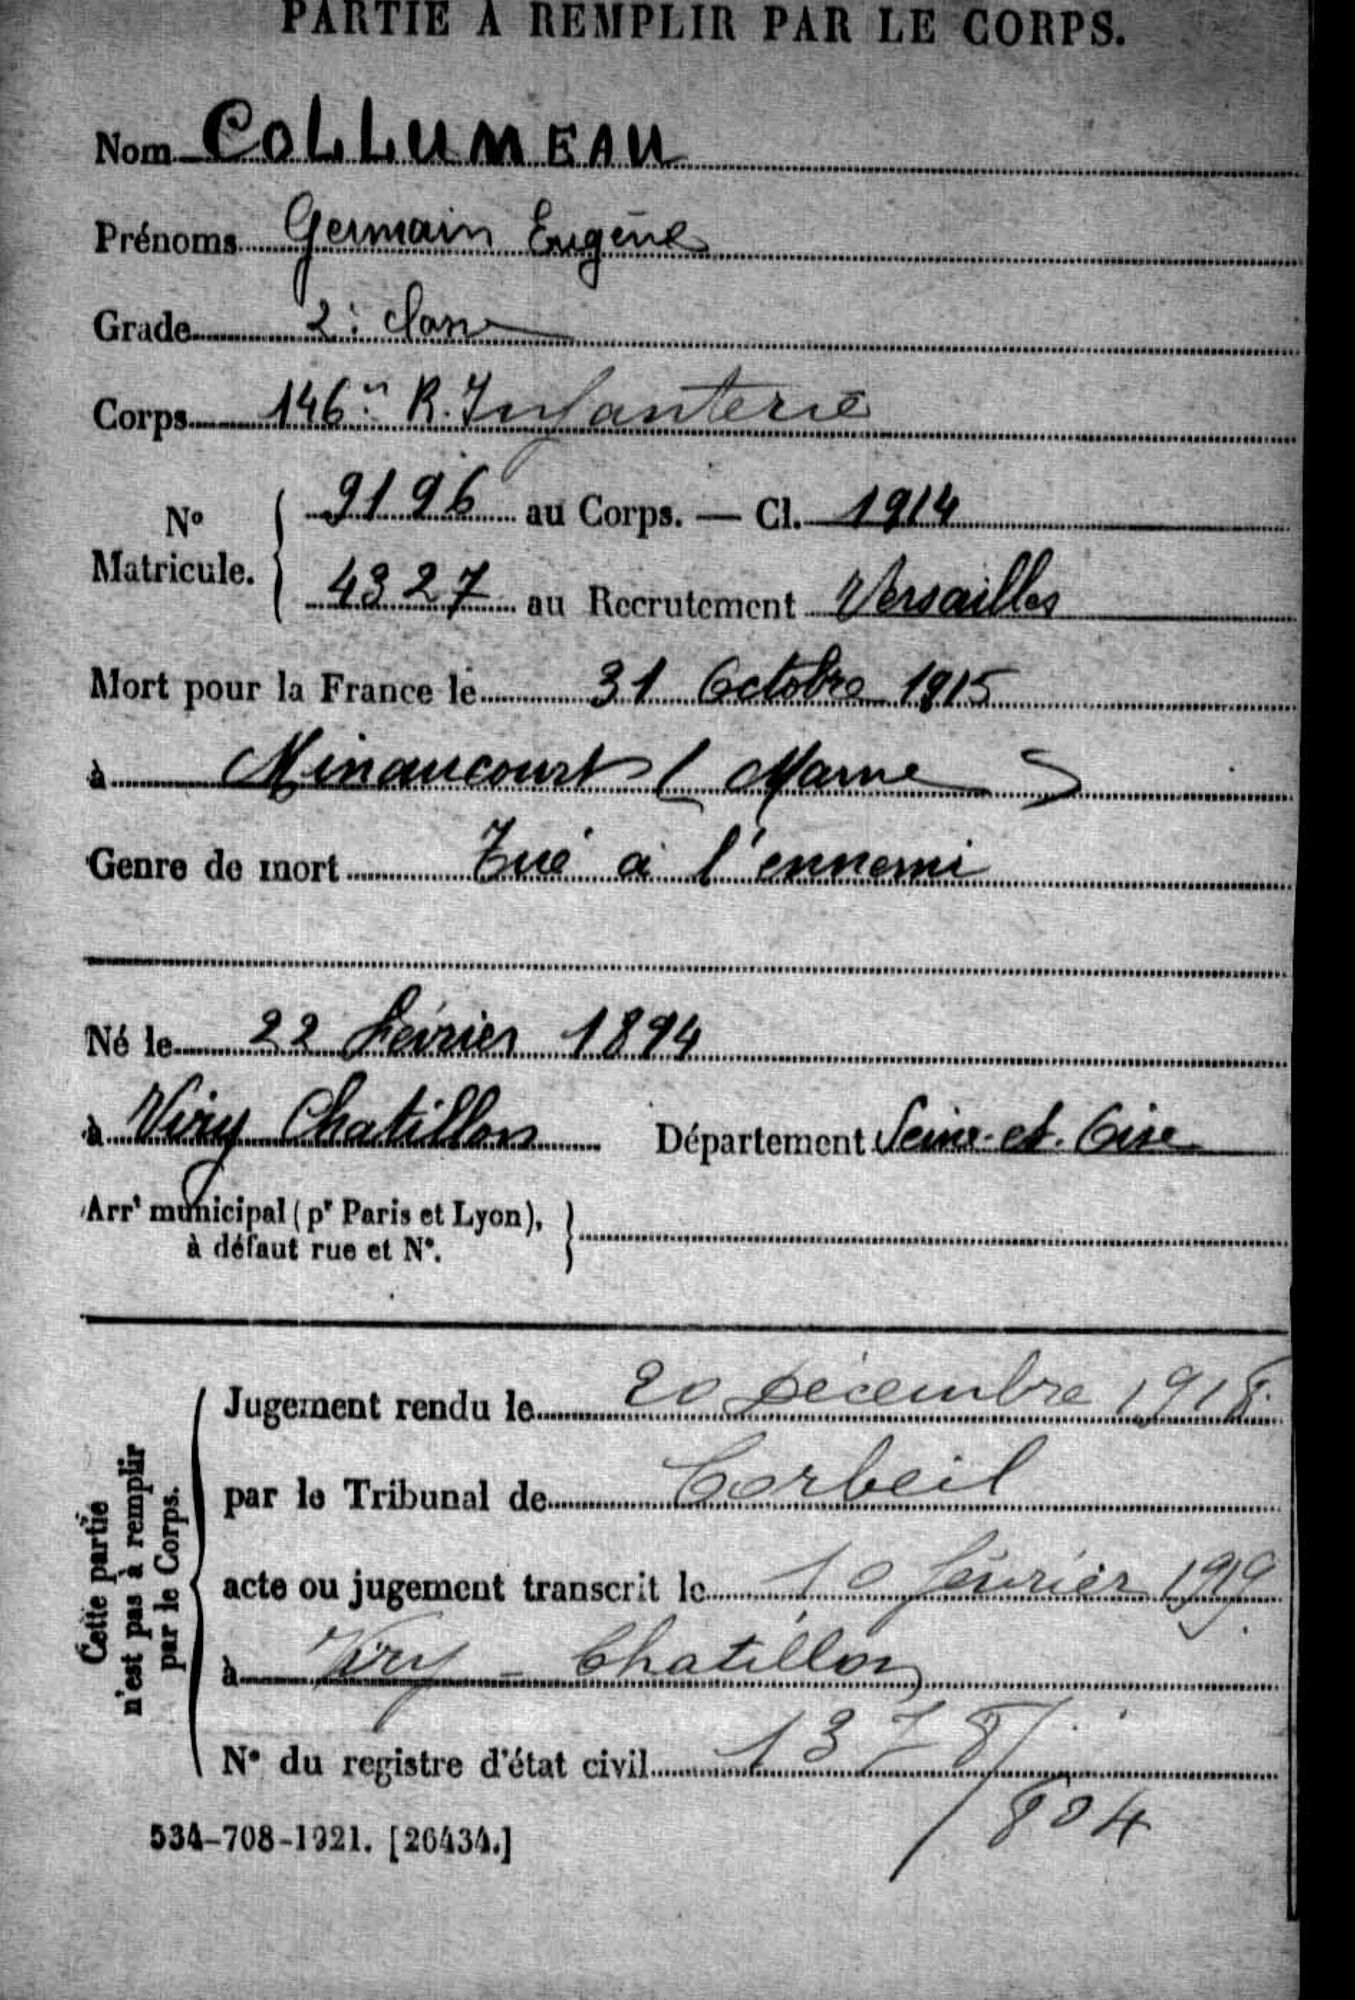 PARTIE À REMPLIR PAR LE CORPS.
Nom COLLUMEAU
Prénoms Germain Eugène
Grade 2e classe
Corps 146e R. Infanterie
No Matricule. { 9196 au Corps. — Cl. 1914
4327 au Recrutement Versailles
Mort pour la France le 31 Octobre 1915
à Minaucourt (Marne)
Genre de mort Tué à l'ennemi
Né le 22 Février 1894
à Viry Chatillon Département Seine-et-Oise
Arrt municipal (pr Paris et Lyon),
à défaut rue et No.
Cette partie n'est pas à remplir par le Corps.
Jugement rendu le 20 Décembre 1918.
par le Tribunal de Corbeil
acte ou jugement transcrit le 10 février 1919.
à Viry-Chatillon
No du registre d'état civil 1378/
/804
534-708-1921. [26434.]